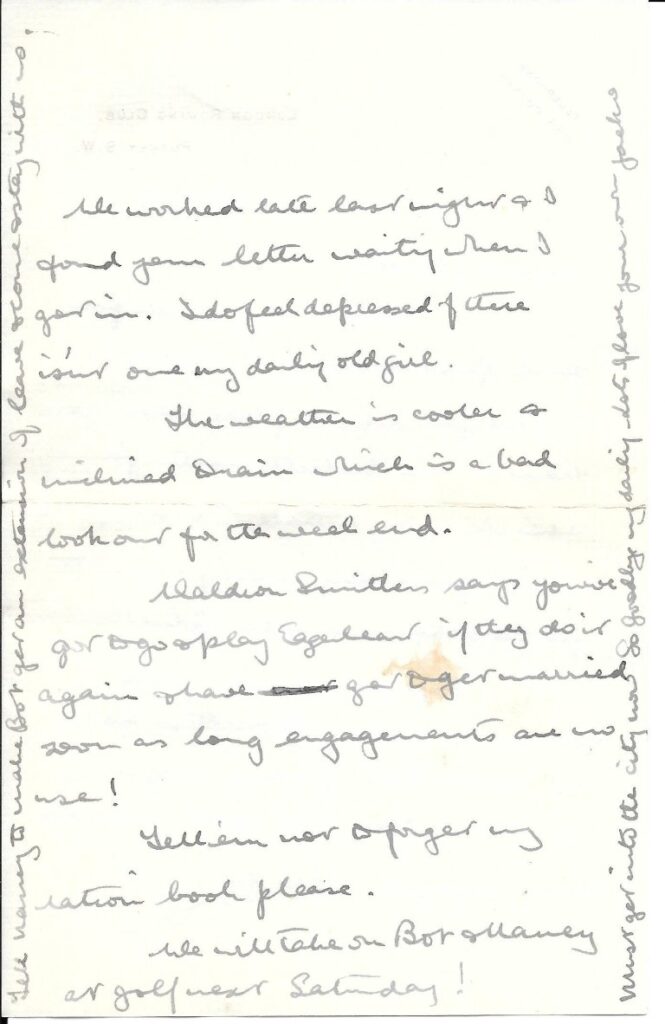 We worked late last night & I
found your letter waiting when I
got in. I do feel depressed if there
isn't one my darling old girl.
The weather is cooler &
inclined to rain which is a bad
look out for the week end.
Smithers says you've
got to go & play Eggheart if they do it
again & have got to get married
soon as long engagements are no
use!
Tell 'em not to forget my
ration book please.
We will take on Bot & Nancy
at golf next Saturday!
Must get into the city now So goodbye my darling lots of love your own Jacko
Tell Nancy to make Bot get an extension of leave & come & stay with us.